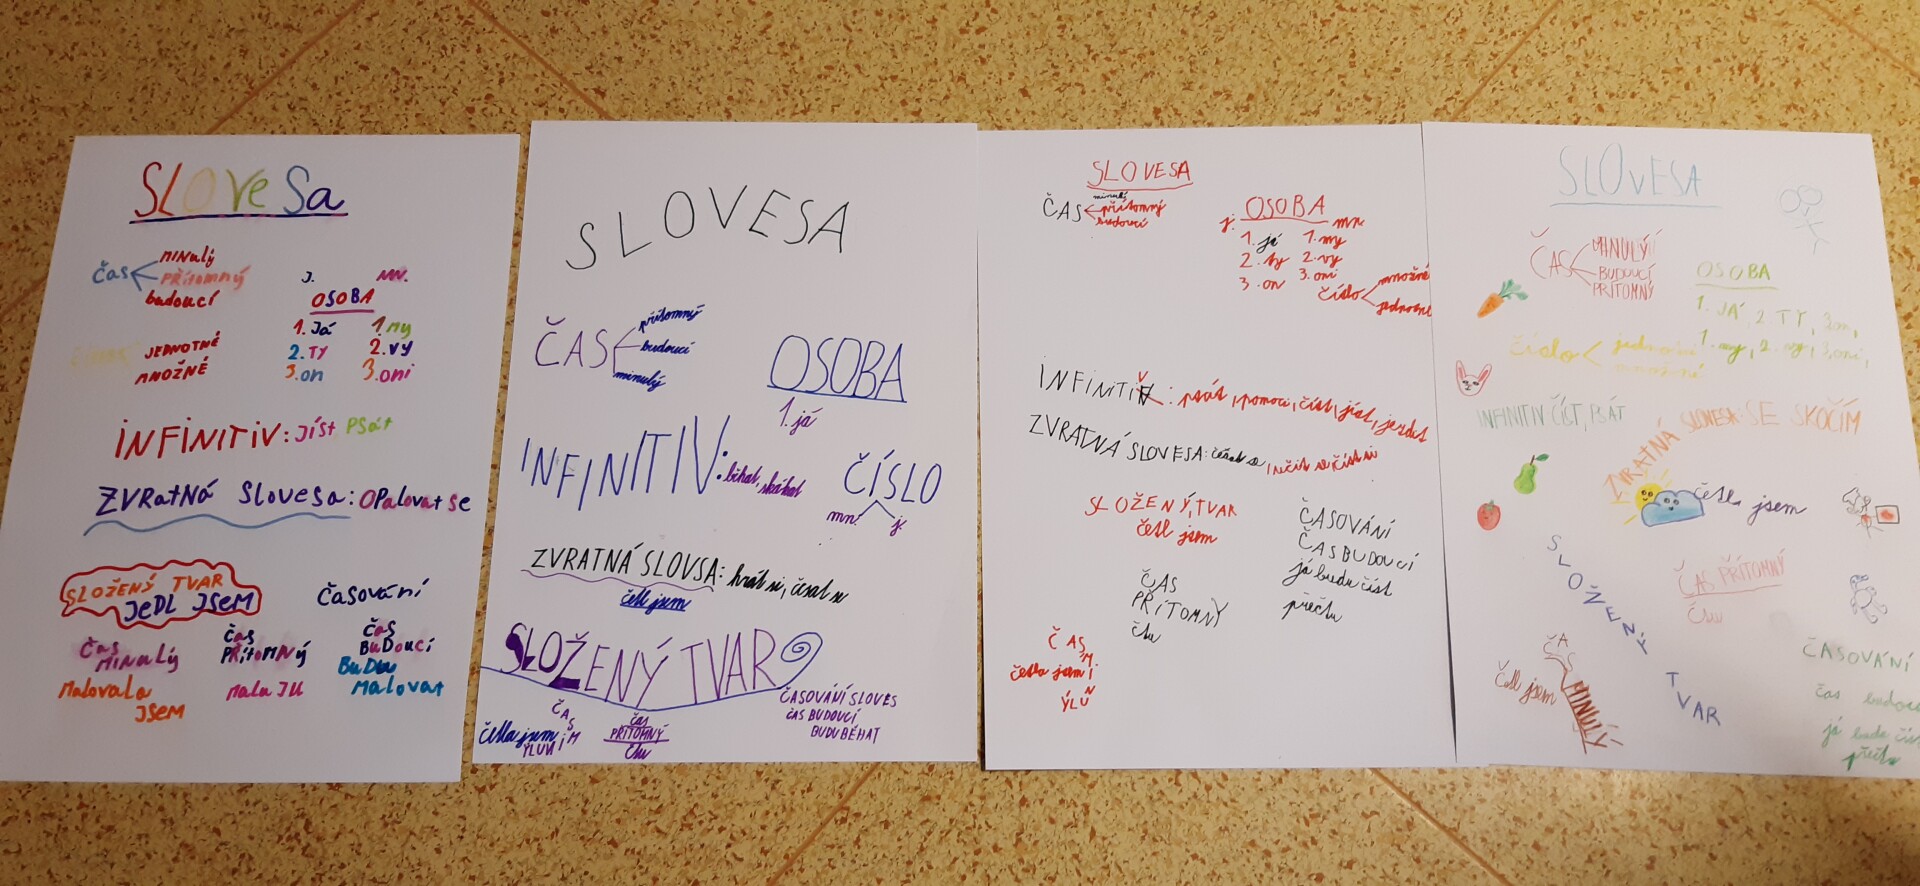 SLOVeSa
Čas
MINulý
PŘÍTOMNÝ
budoucí
J.
MN.
OSOBA
1. Já
1. My
2. TY
2. VY
3. on
3. oni
JEDNOTNÉ
MNOŽNÉ
INFINITIV: JÍST PSát
ZVRatNá Slovesa: OPalovat se
SLOŽENÝ TVAR
JeDL JSEM
Časování
Čas
MINULÝ
Malovala
JSEM
Čas
PŘÍTOMNÝ
MaluJU
Čas
BuDoucí
BuDu
Malovat
SLOVESA
ČAS
přítomný
budoucí
minulý
OSOBA
1. já
INFINITIV: běhat, skákat
ČÍSLO
mn.
j.
ZVRATNÁ SLOVSA: hrát si, česat se
četl jsem
SLOŽENÝ TVAR
ČAS
MINULÝ
četla jsem
čas
PŘÍTOMNÝ
čtu
ČASOVÁNÍ SLOVES
ČAS BUDOUCÍ
BUDU BĚHAT
SLOVESA
ČAS
minulý
přítomný
budoucí
OSOBA
j.
mn.
1. já
1. my
2. ty
2. vy
3. on
3. oni
číslo
množné
jednotné
INFINITIV: psát, pomoci, číst, jíst, jezdit
ZVRATNÁ SLOVESA: česat se, učit se, číst si
SLOŽENÝ TVAR
četl jsem
ČASOVÁNÍ
ČAS BUDOUCÍ
já budu číst
přečtu
ČAS
PŘÍTOMNÝ
čtu
ČAS
MINULÝ
četla jsem
SLOVESA
ČAS
MINULÝ
BUDOUCÍ
PŘÍTOMNÝ
OSOBA
1. JÁ 2. TY, 3. on,
1. my, 2. vy, 3. oni,
číslo
jednotné
množné
INFINITIV ČÍST, PSÁT
ZVRATNÁ SLOVESA: SE SKOČÍM
četla jsem
SLOŽENÝ TVAR
ČAS PŘÍTOMNÝ
čtu
ČAS
MINULÝ
četl jsem
ČASOVÁNÍ
čas
já budu